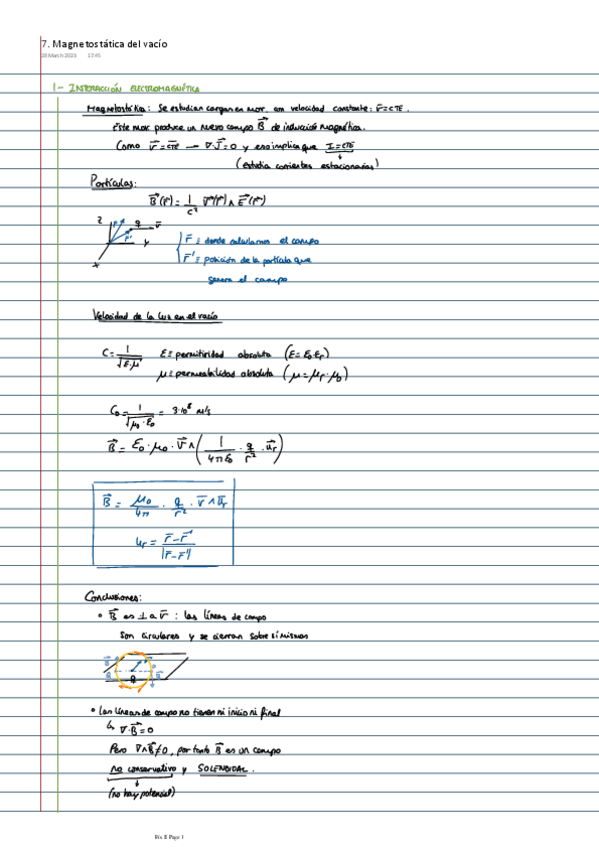 7. Magnetostática del vacío
28 March 2023 17:45
1- INTERACCIÓN ELECTROMAGNÉTICA
Magnetostática: Se estudian cargas en mov. con velocidad constante: v̄=CTE.
Este mov. produce un nuevo campo B⃗ de inducción magnética.
Como v̄=CTE → ∇·J⃗=0 y eso implica que I=CTE
(estudia corrientes estacionarias)
Partículas:
B⃗(r⃗) = 1/c² v⃗(r⃗) ∧ E⃗(r⃗)
z r r' q v̄
y
x
r̄ ≡ donde calculamos el campo
r̄' ≡ posición de la partícula que
genera el campo
Velocidad de la luz en el vacío
C = 1/√(ε·μ) ε ≡ permitividad absoluta (ε=ε₀·εr)
μ ≡ permeabilidad absoluta (μ=μr·μ₀)
C₀ = 1/√(μ₀·ε₀) = 3·10⁸ m/s
B⃗ = ε₀·μ₀·v̄ ∧ (1/4πε₀ · q/r² · u⃗r)
B⃗ = μ₀/4π · q/r² · v̄ ∧ ūr
ūr = (r̄-r̄')/|r̄-r̄'|
Conclusiones:
• B⃗ es ⊥ a v̄ : las líneas de campo
son circulares y se cierran sobre sí mismas
• Las líneas de campo no tienen ni inicio ni final
↳ ∇·B⃗=0
Pero ∇∧B⃗≠0, por tanto B⃗ es un campo
no conservativo y SOLENOIDAL.
(no hay potencial)
Fis II Page 1